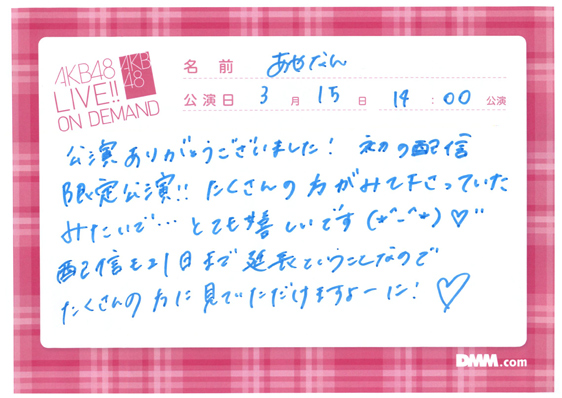 AKB48
LIVE!!
ON DEMAND
AKB
48
名前 あやなん
公演日 3月15日 14:00公演
公演ありがとうございました! 初の配信
限定公演!! たくさんの方がみて下さっていた
みたいで… とても嬉しいです(*^-^*)♡"
配信も21日まで延長ということなので
たくさんの方に見ていただけますよーに!♡
DMM.com